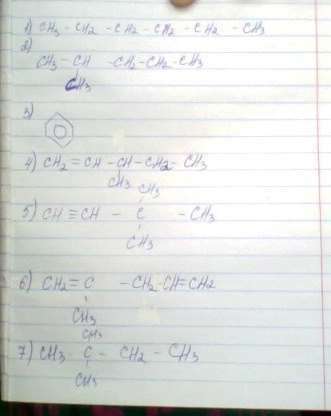 1) CH3 - CH2 - CH2 - CH2 - CH2 - CH3
2)
CH3 - CH - CH2 - CH2 - CH3
CH3
3)
4) CH2 = CH - CH - CH2 - CH3
CH3
CH3
5) CH ≡ CH - C - CH3
CH3
6) CH2 = C - CH2 - CH = CH2
CH3
CH3
7) CH3 - C - CH2 - CH3
CH3